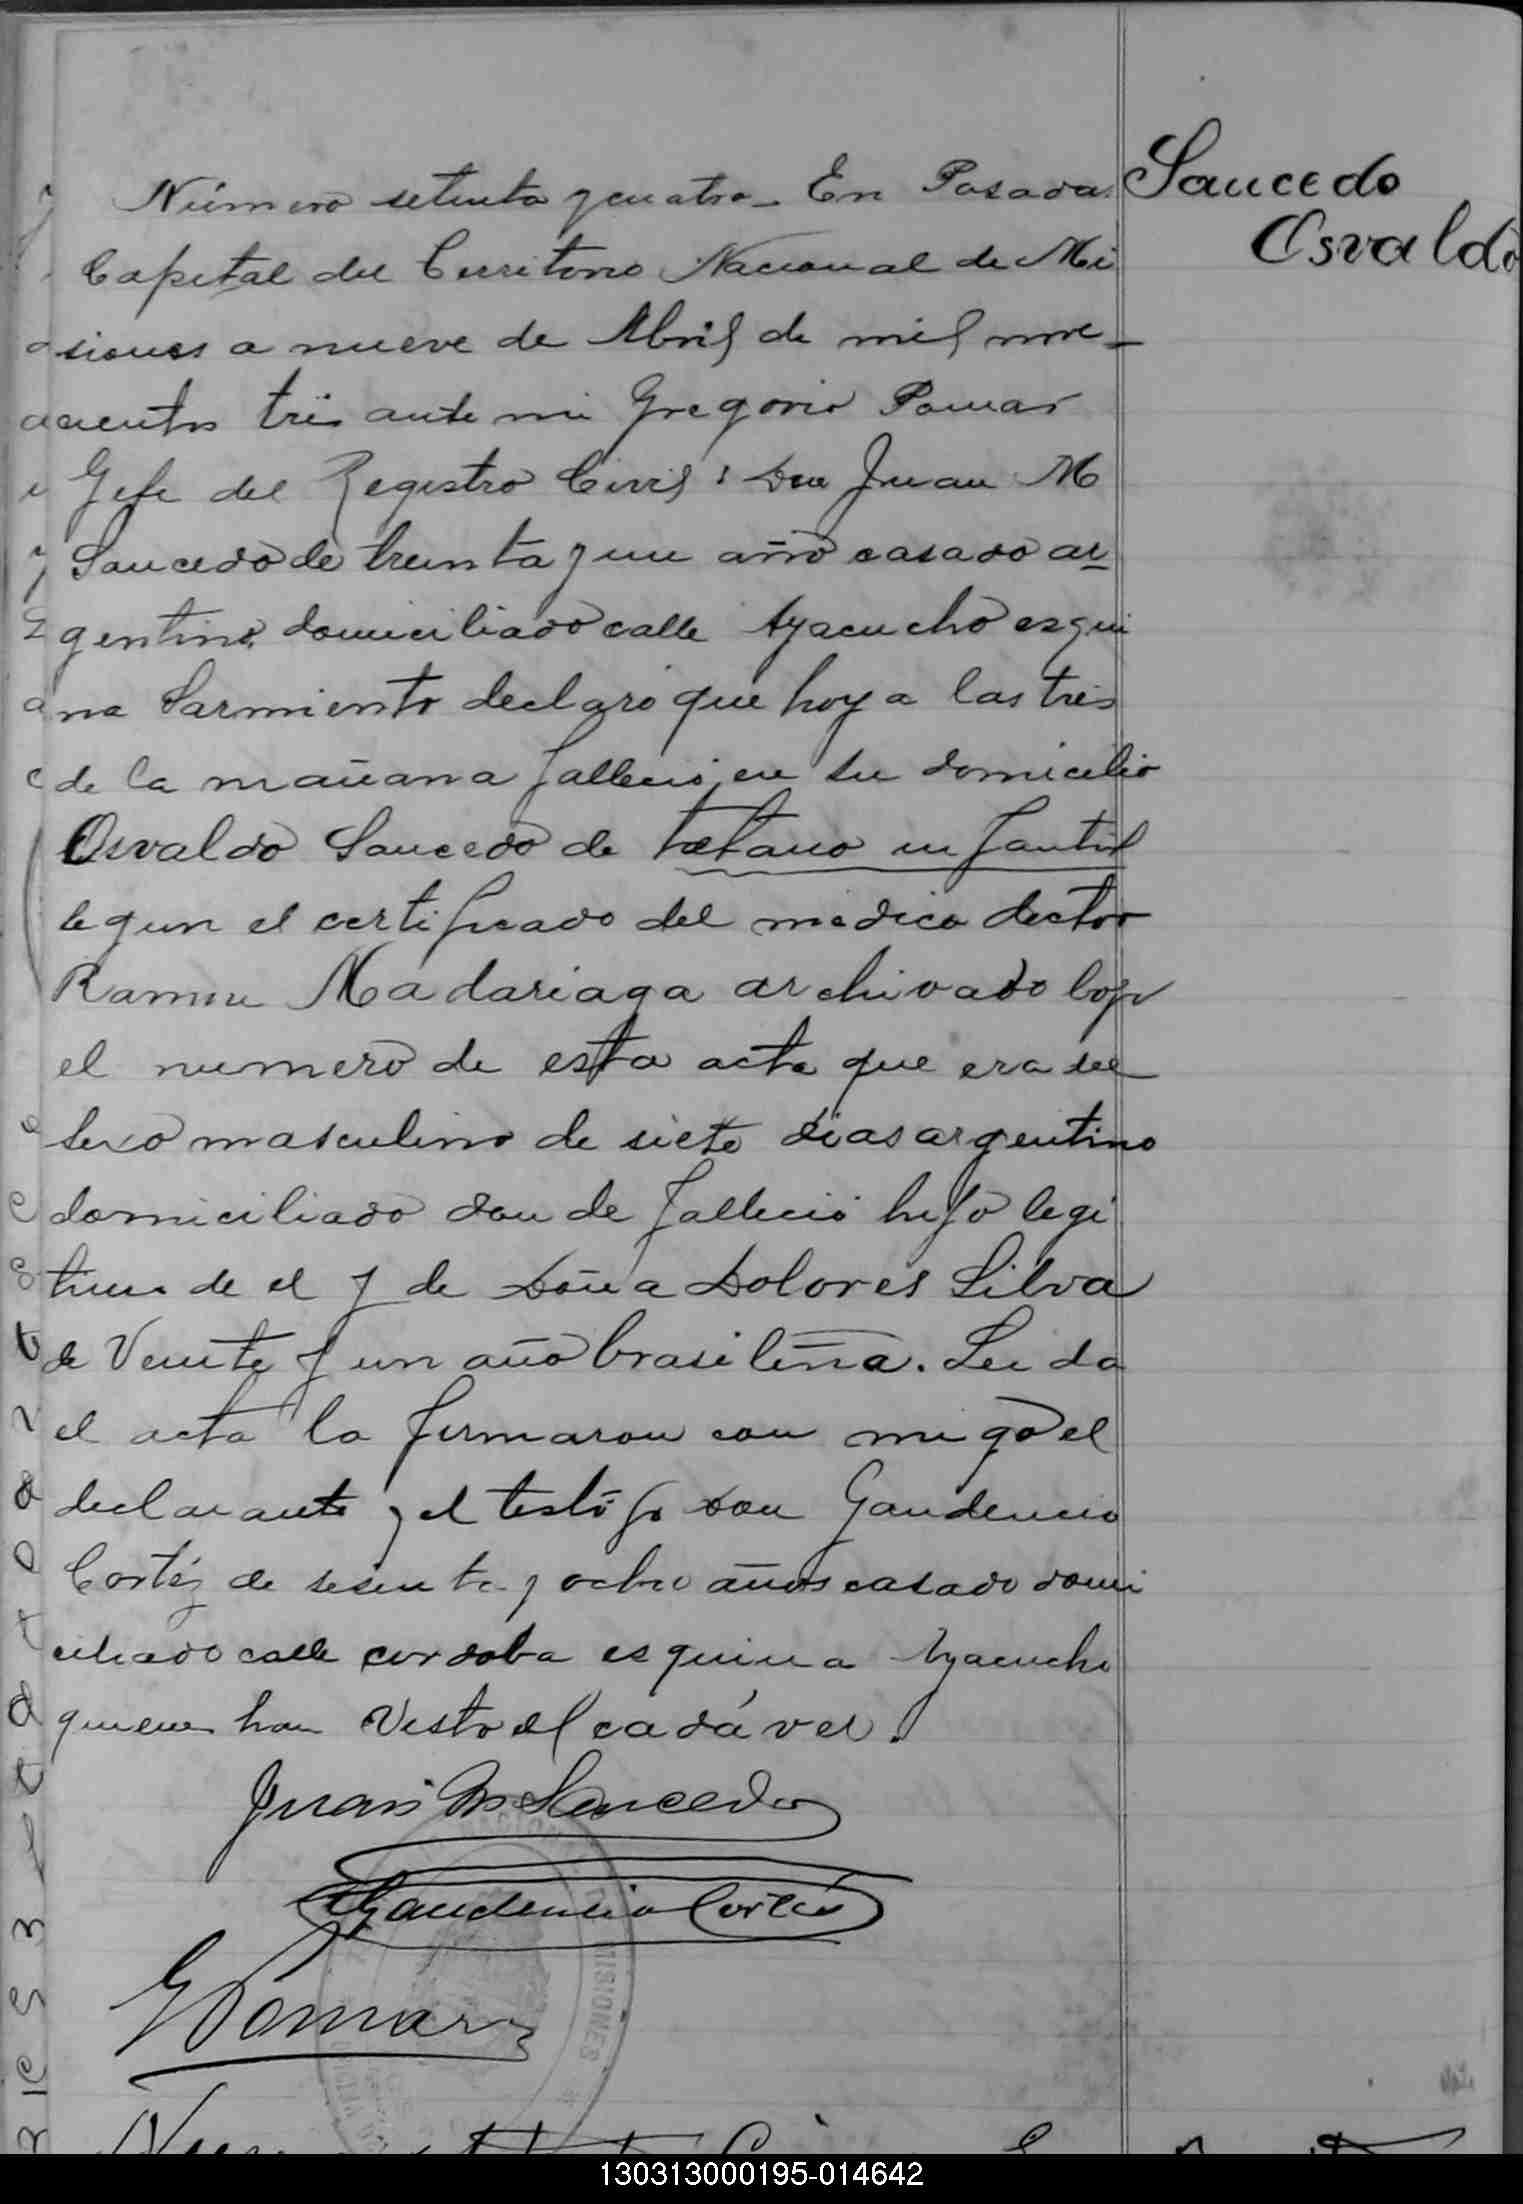 Saucedo
Osvaldo
Número setenta y cuatro_ En Posadas
Capital del Territorio Nacional de Mi
siones a nueve de Abril de mil nove_
cientos tres ante mi Gregorio Pomar
Gefe del Registro Civil: Don Juan M
Saucedo de treinta y un año casado ar
gentino, domiciliado calle Ayacucho esqui
na Sarmiento declaró que hoy a las tres
de la mañana falleció en su domicilio
Osvaldo Saucedo de tetano infantil
segun el certificado del medico doctor
Ramon Madariaga archivado bajo
el numero de esta acta que era del
sexo masculino de siete dias argentino
domiciliado donde falleció hijo legi
timo de el y de Doña Dolores Silva
de Veinte y un año brasileña. Leida
el acta la firmaron con migo el
declarante y el testigo Don Gaudencio
Cortéz de sesenta y ocho años casado domi
ciliado calle cordoba esquina Ayacucho
quienes han Visto el cadáver.
Juan M Saucedo
Gaudencio Cortés
G Pomar
MISIONES
130313000195-014642